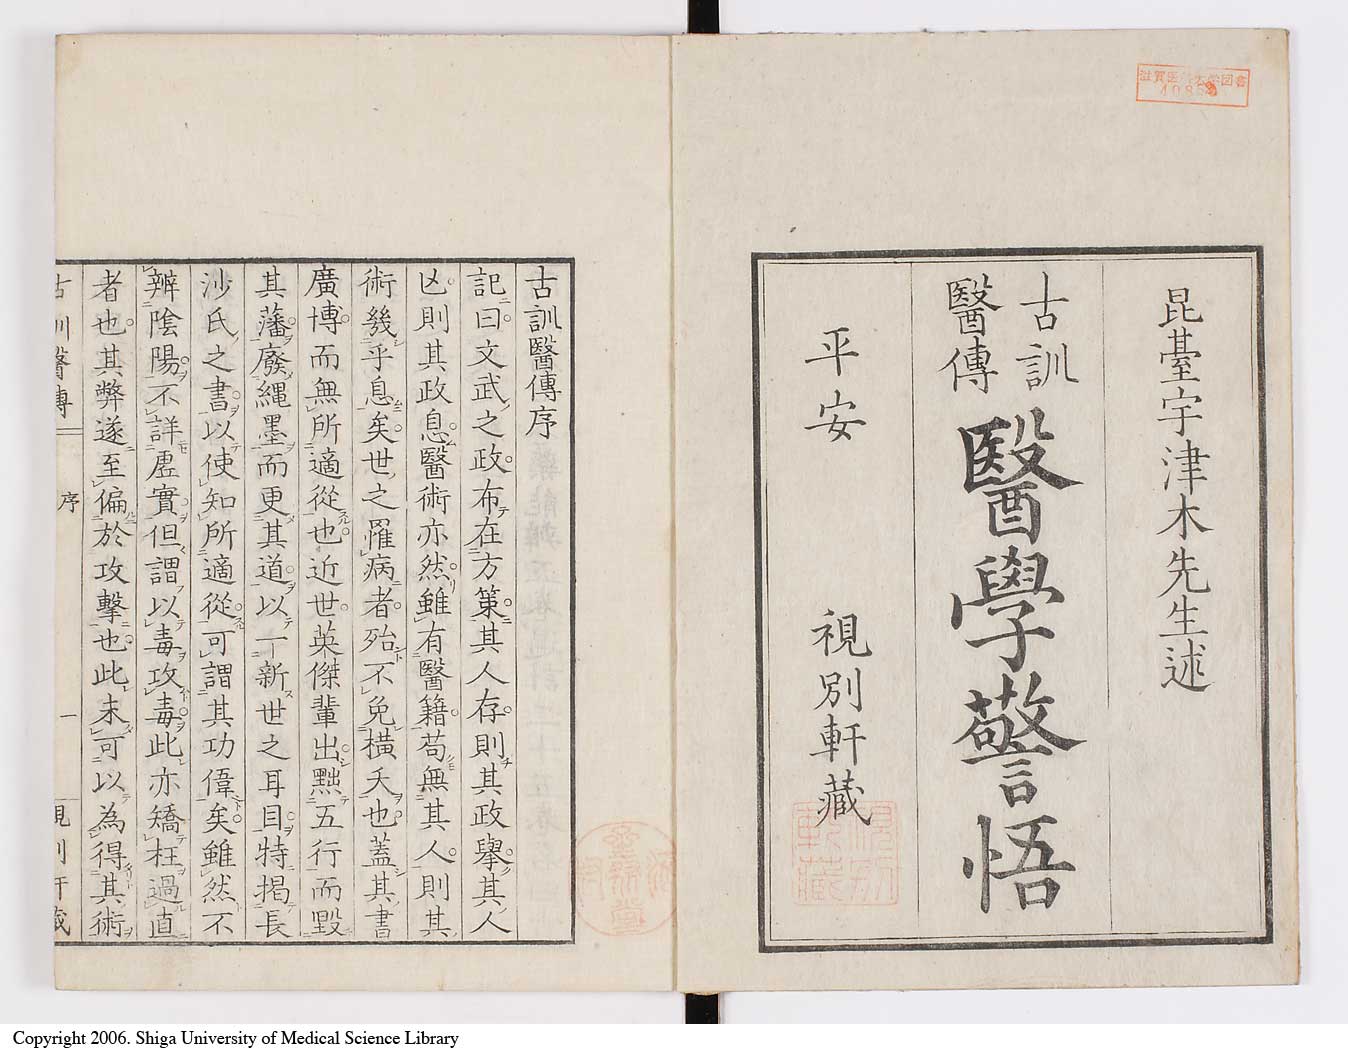 昆臺宇津木先生述
古訓
醫傳
醫學警悟
平安 視別軒藏
古訓醫傳序
記曰文武之政布在方策其人存則其政擧其人
亾則其政息醫術亦然雖有醫籍苟無其人則其
術幾乎息矣世之罹病者殆不免橫夭也蓋其書
廣博而無所適從也近世英傑輩出黜五行而毀
其藩廢縄墨而更其道以一新世之耳目特揭長
沙氏之書以使知所適從可謂其功偉矣雖然不
辨陰陽不詳虛實但謂以毒攻毒此亦矯枉過直
者也其弊遂至偏於攻擊也此未可以為得其術
古訓醫傳 序 一 視別軒藏
Copyright 2006. Shiga University of Medical Science Library